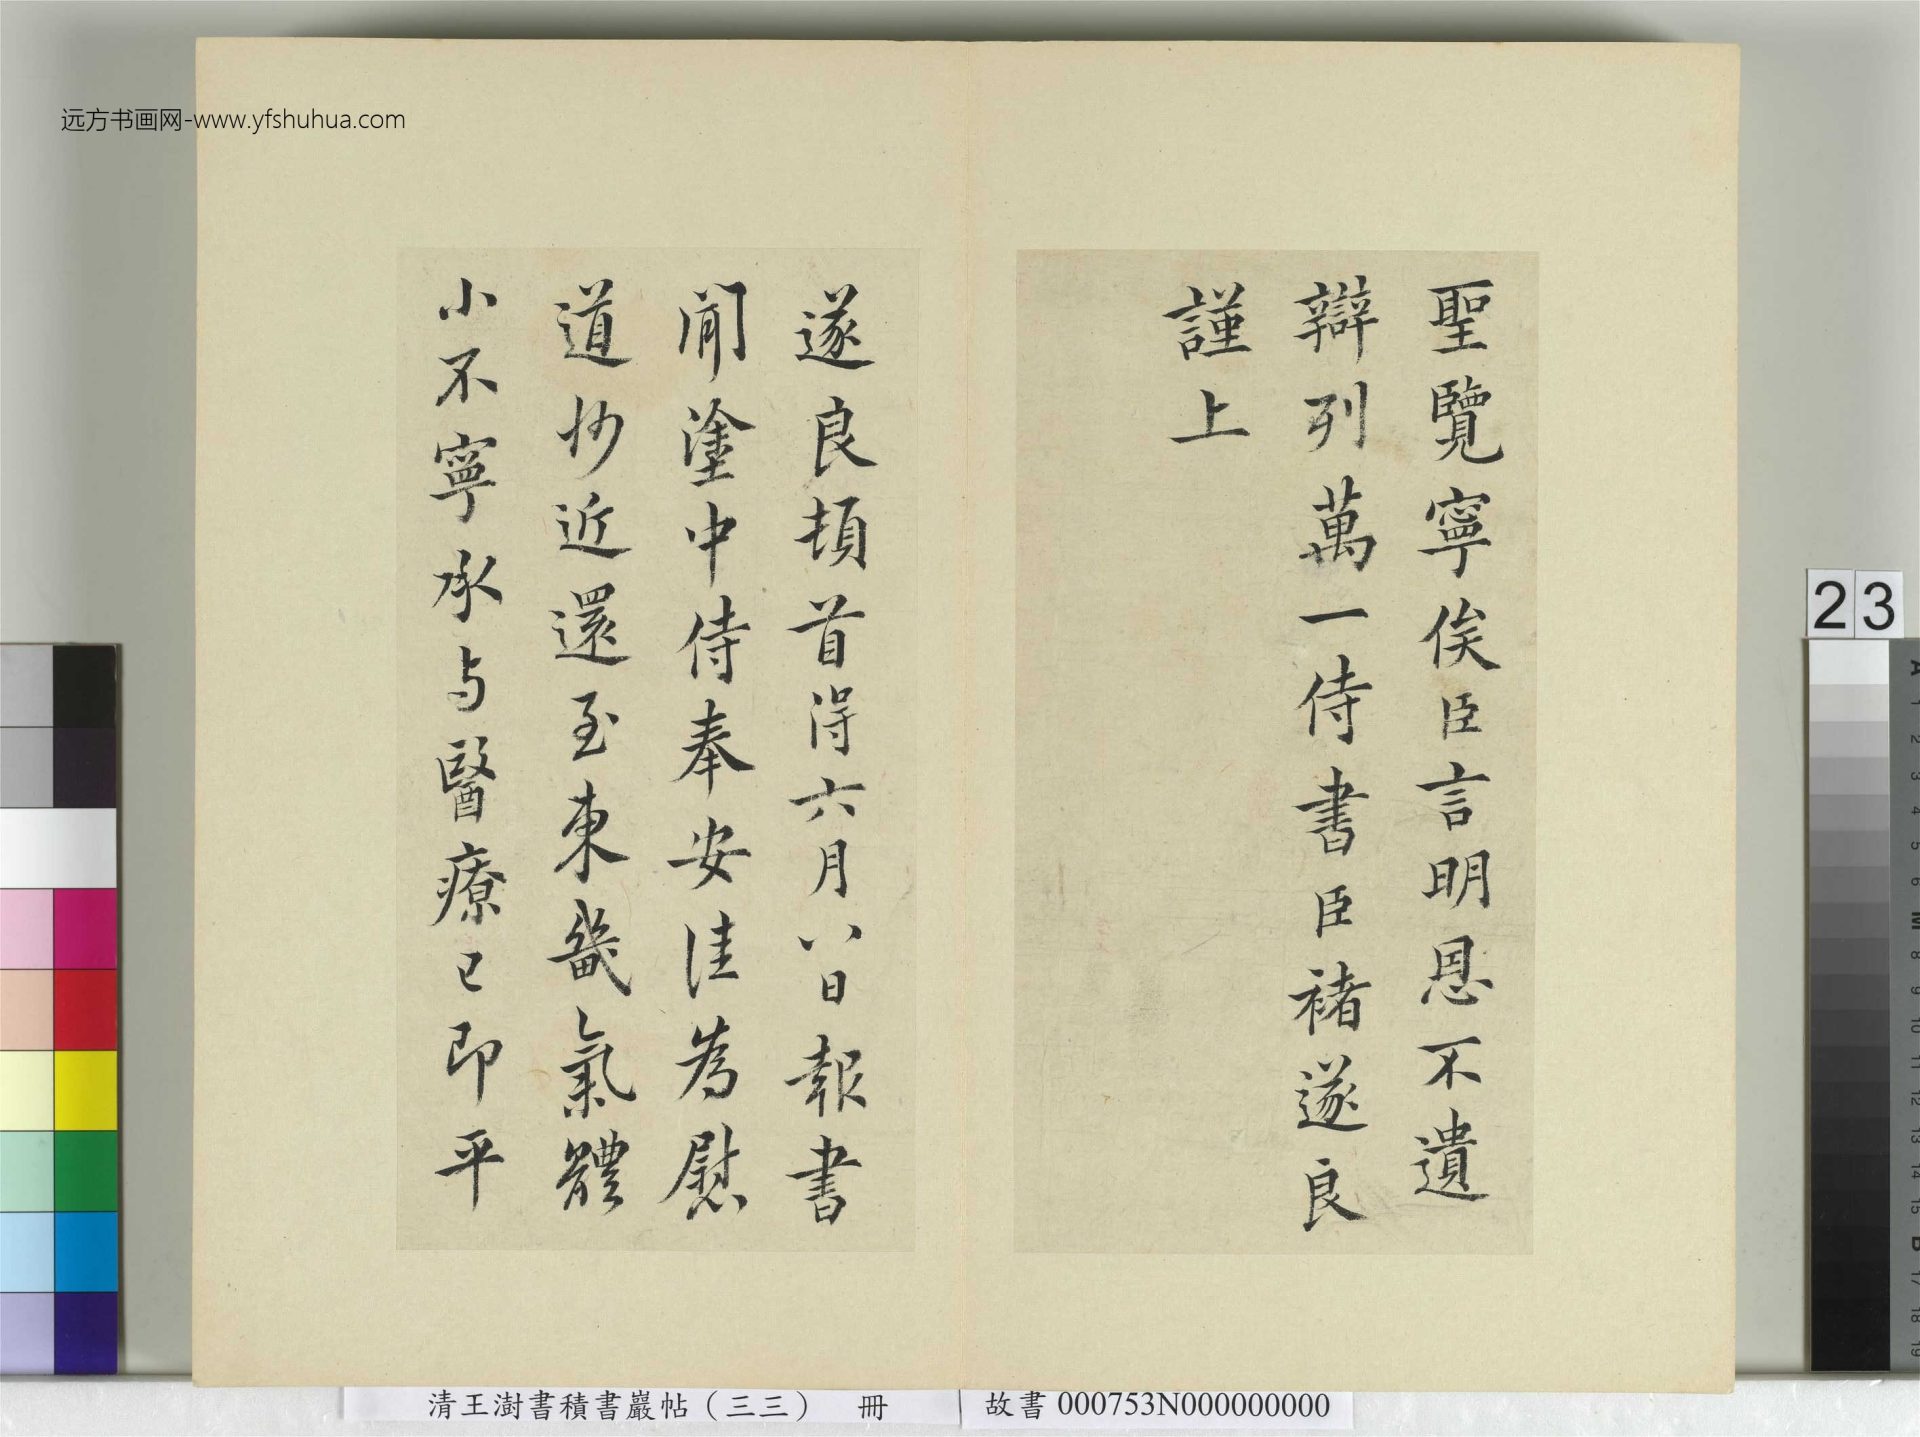 远方书画网-www.yfshuhua.com
聖覽寧俟臣言明恩不遺
辯列萬一侍書臣褚遂良
謹上
遂良頓首得六月八日報書
聞塗中侍奉安佳為慰
道抄近還至東畿氣體
小不寧承与醫療已即平
23
清王澍書積書巖帖（三三） 冊 故書000753N000000000